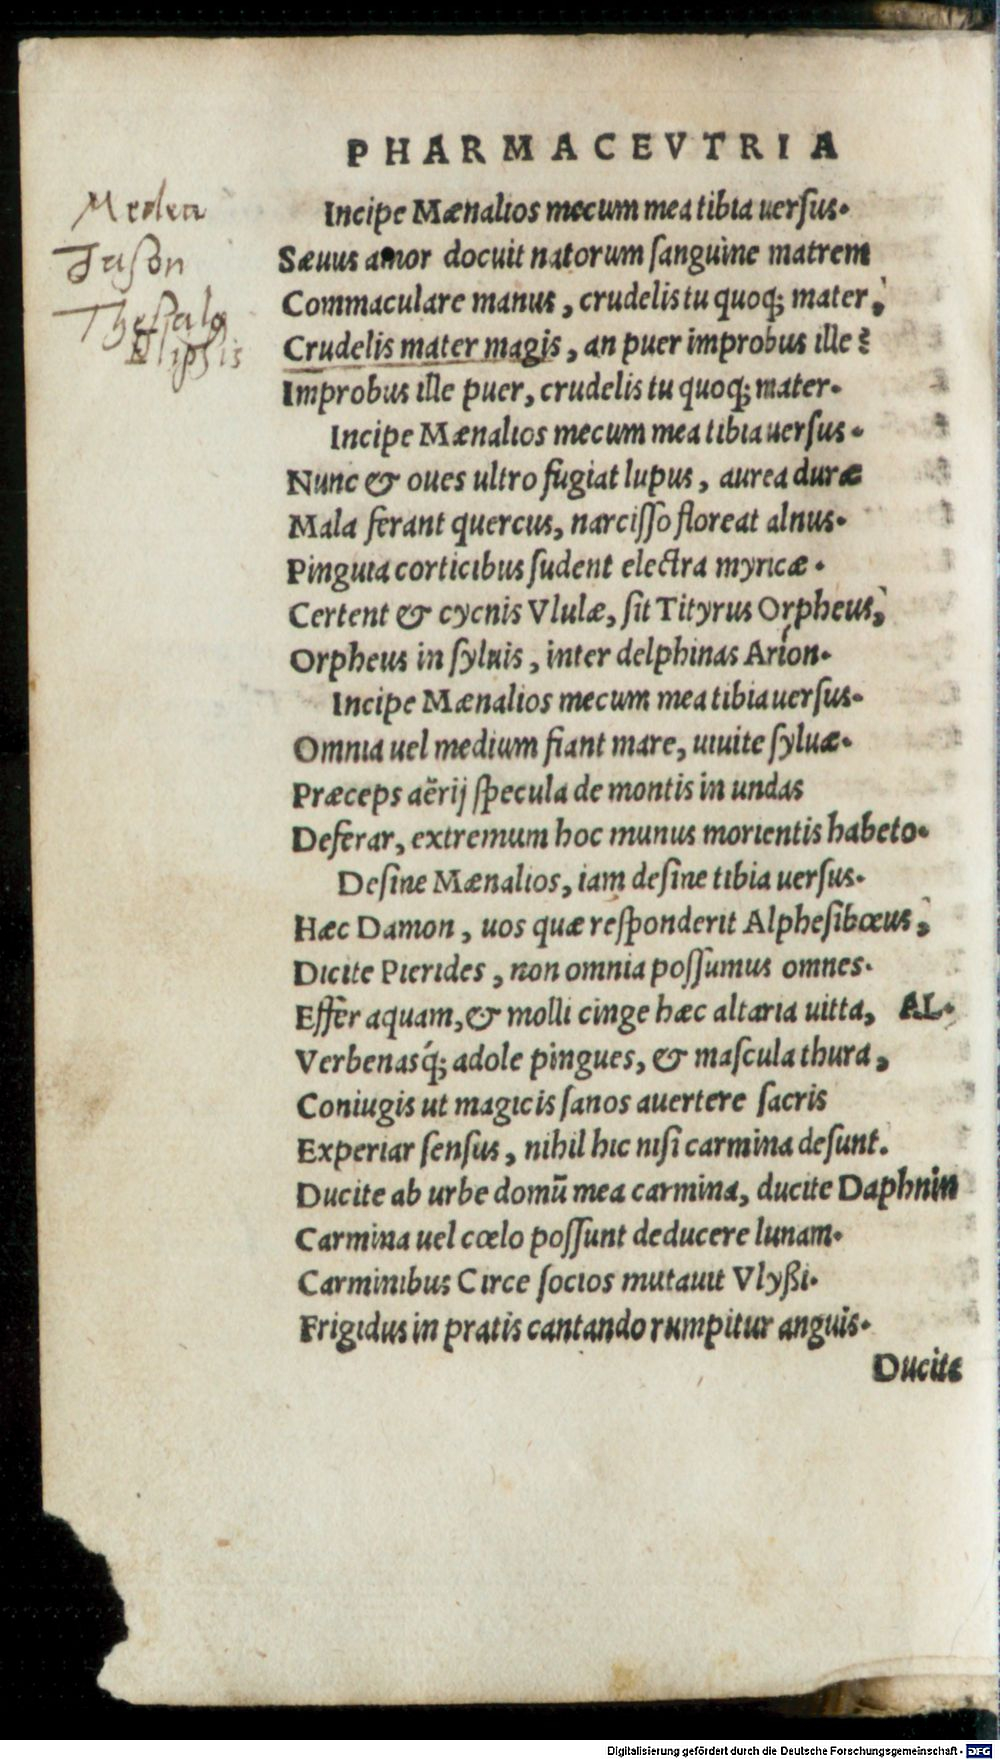 PHARMACEVTRIA
Medea
Jason
Elipsis
Incipe Mænalios mecum mea tibia uersus.
Sæuus amor docuit natorum sanguine matrem
Commaculare manus, crudelis tu quoq; mater,
Crudelis mater magis, an puer improbus ille?
Improbus ille puer, crudelis tu quoq; mater.
Incipe Mænalios mecum mea tibia uersus.
Nunc & oues ultro fugiat lupus, aurea duræ
Mala ferant quercus, narcisso floreat alnus.
Pinguia corticibus sudent electra myricæ.
Certent & cycnis Vlulæ, sit Tityrus Orpheus,
Orpheus in syluis, inter delphinas Arion.
Incipe Mænalios mecum mea tibia uersus.
Omnia uel medium fiant mare, uiuite syluæ.
Præceps aërij specula de montis in undas
Deferar, extremum hoc munus morientis habeto.
Desine Mænalios, iam desine tibia uersus.
Hæc Damon, uos quæ responderit Alphesibœus,
Dicite Pierides, non omnia possumus omnes.
Effer aquam, & molli cinge hæc altaria uitta, AL.
Verbenasq́; adole pingues, & mascula thura,
Coniugis ut magicis sanos auertere sacris
Experiar sensus, nihil hic nisi carmina desunt.
Ducite ab urbe domū mea carmina, ducite Daphnin
Carmina uel cœlo possunt deducere lunam.
Carminibus Circe socios mutauit Vlyßi.
Frigidus in pratis cantando rumpitur anguis.
Ducite
Digitalisierung gefördert durch die Deutsche Forschungsgemeinschaft - DFG